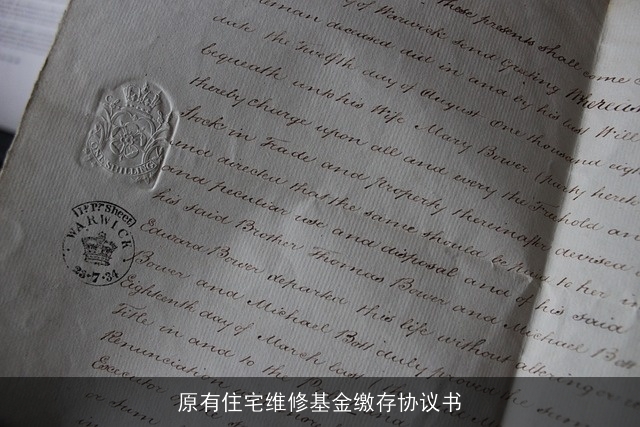 these presents shall come
of Warwick send Greeting Whereas
deceased did in and by his last Will
date the Twelfth day of August One thousand eigh
bequeath unto his Wife Mary Bower
thereby charge upon all and every the Freehold an
Stock in Trade and property thereinafter devised
and directed that the same should be paid to her
and peculiar use and disposal and of his said
his said Brother Thomas Bower and Michael Bott
Edward Bower departed this life without altering or
Bower and Michael Bott duly proved the
Eighteenth day of March last
Title in and to the
Renunciation
Executor
or sum
ONE SHILLING
11 Pr Sheet
WARWICK
23·7·34
原有住宅维修基金缴存协议书